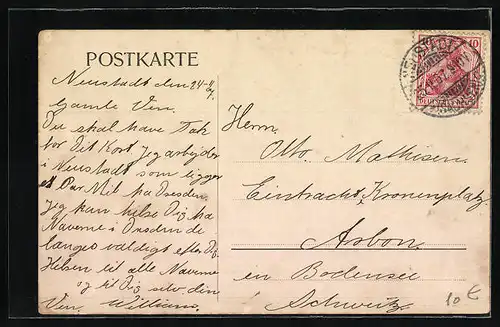 POSTKARTE
Neustadt den 24-4
Gamle Ven.
Du skal have Tak
for dit Kort Jeg arbejder
i Neustadt som ligger
et Par Mil fra Dresden.
Jeg kan hilse Dig fra
Naverne i Dresden de
længes valdigt efter Dig
Hilsen til alle Naverne
og til Dig selv. din
Ven. William.
Herrn.
Otto. Mathisen.
Eintracht, Kronenplatz.
Arbon.
in Bodensee
Schweitz
10
10 €